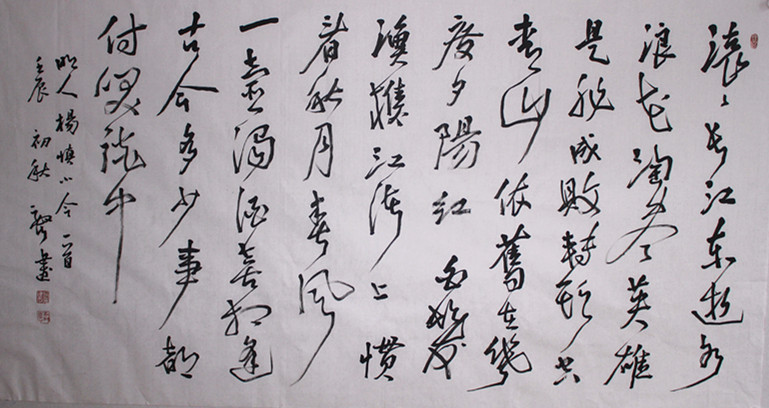 滚滚长江东逝水
浪花淘尽英雄
是非成敗转头空
青山依舊在幾
度夕陽红白发
渔樵江渚上惯
看秋月春风
一壶浊酒喜相逢
古今多少事都
付笑谈中
明人楊慎小令一首
壬辰初秋書